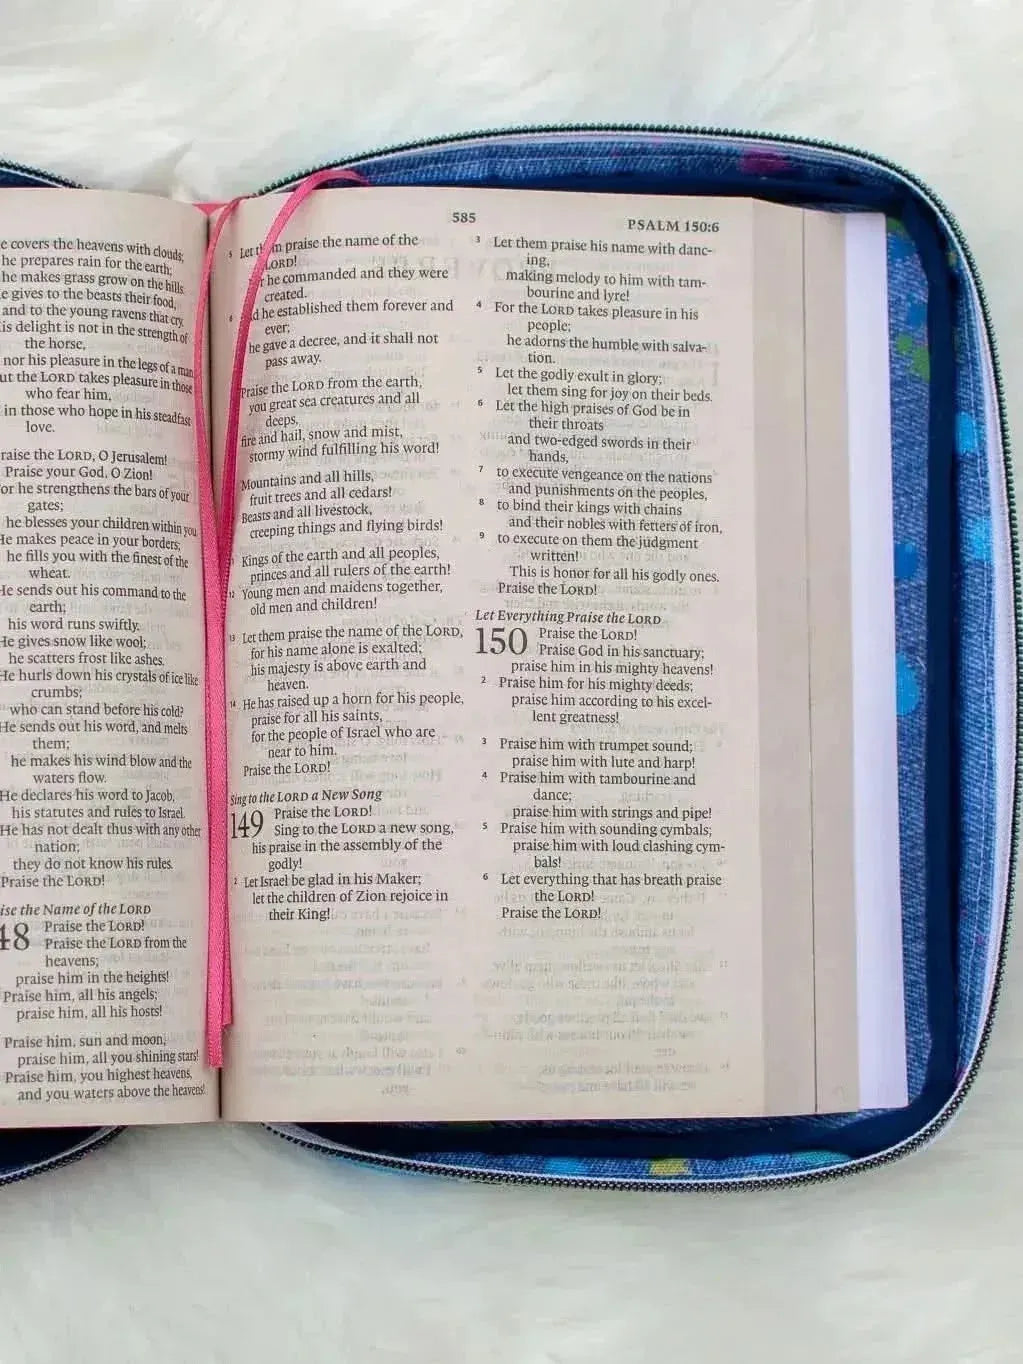 e covers the heavens with clouds;
he prepares rain for the earth;
he makes grass grow on the hills.
e gives to the beasts their food,
and to the young ravens that cry.
is delight is not in the strength of
the horse,
nor his pleasure in the legs of a man,
ut the LORD takes pleasure in those
who fear him,
in those who hope in his steadfast
love.
raise the LORD, O Jerusalem!
Praise your God, O Zion!
or he strengthens the bars of your
gates;
he blesses your children within you.
He makes peace in your borders;
he fills you with the finest of the
wheat.
He sends out his command to the
earth;
his word runs swiftly.
He gives snow like wool;
he scatters frost like ashes.
He hurls down his crystals of ice like
crumbs;
who can stand before his cold?
He sends out his word, and melts
them;
he makes his wind blow and the
waters flow.
He declares his word to Jacob,
his statutes and rules to Israel.
He has not dealt thus with any other
nation;
they do not know his rules.
Praise the LORD!
ise the Name of the LORD
48 Praise the LORD!
Praise the LORD from the
heavens;
praise him in the heights!
Praise him, all his angels;
praise him, all his hosts!
Praise him, sun and moon,
praise him, all you shining stars!
Praise him, you highest heavens,
and you waters above the heavens!
585
PSALM 150:6
5 Let them praise the name of the
LORD!
he commanded and they were
created.
6 And he established them forever and
ever;
he gave a decree, and it shall not
pass away.
Praise the LORD from the earth,
you great sea creatures and all
deeps,
fire and hail, snow and mist,
stormy wind fulfilling his word!
Mountains and all hills,
fruit trees and all cedars!
Beasts and all livestock,
creeping things and flying birds!
Kings of the earth and all peoples,
princes and all rulers of the earth!
12 Young men and maidens together,
old men and children!
13 Let them praise the name of the LORD,
for his name alone is exalted;
his majesty is above earth and
heaven.
14 He has raised up a horn for his people,
praise for all his saints,
for the people of Israel who are
near to him.
Praise the LORD!
Sing to the LORD a New Song
149 Praise the LORD!
Sing to the LORD a new song,
his praise in the assembly of the
godly!
2 Let Israel be glad in his Maker;
let the children of Zion rejoice in
their King!
3 Let them praise his name with danc-
ing,
making melody to him with tam-
bourine and lyre!
4 For the LORD takes pleasure in his
people;
he adorns the humble with salva-
tion.
5 Let the godly exult in glory;
let them sing for joy on their beds.
6 Let the high praises of God be in
their throats
and two-edged swords in their
hands,
7 to execute vengeance on the nations
and punishments on the peoples,
8 to bind their kings with chains
and their nobles with fetters of iron,
9 to execute on them the judgment
written!
This is honor for all his godly ones.
Praise the LORD!
Let Everything Praise the LORD
150 Praise the LORD!
Praise God in his sanctuary;
praise him in his mighty heavens!
2 Praise him for his mighty deeds;
praise him according to his excel-
lent greatness!
3 Praise him with trumpet sound;
praise him with lute and harp!
4 Praise him with tambourine and
dance;
praise him with strings and pipe!
5 Praise him with sounding cymbals;
praise him with loud clashing cym-
bals!
6 Let everything that has breath praise
the LORD!
Praise the LORD!